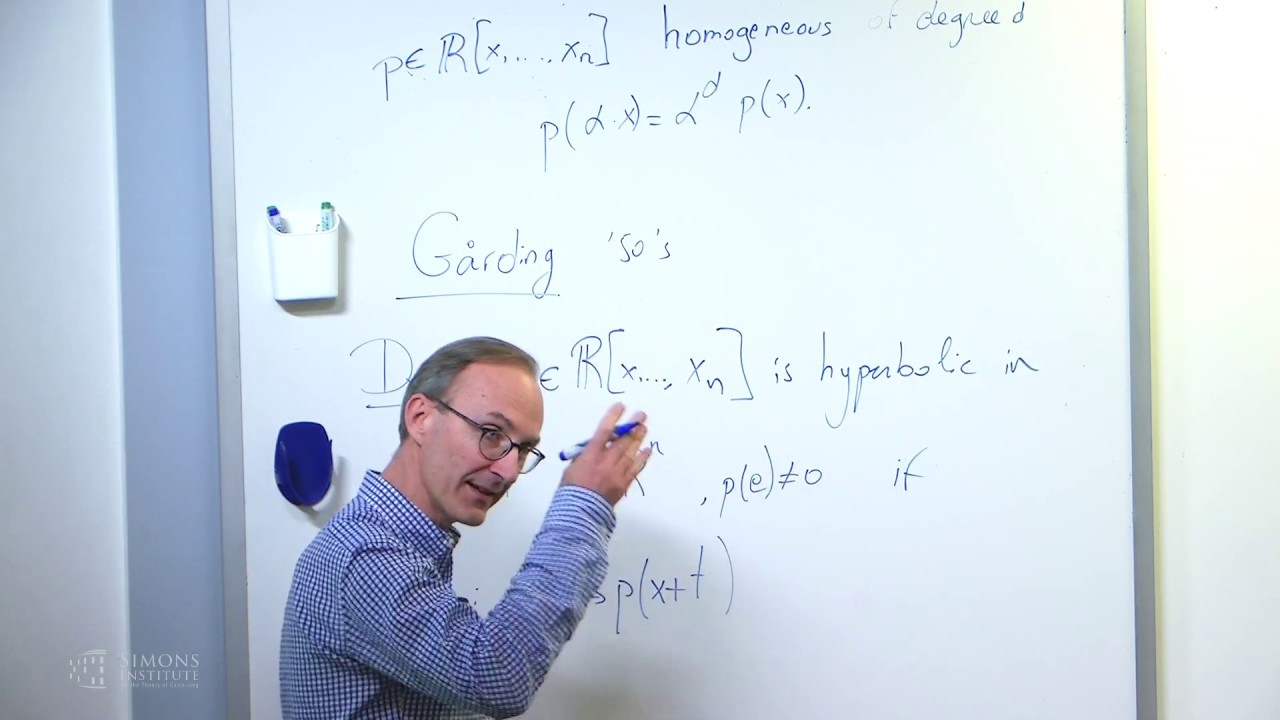 p∈ ℝ[x,...,xₙ] homogeneous of degree d
p(α·x)=α^d p(x).
Gårding '50's
D ∈ ℝ[x,..., xₙ] is hyperbolic in
n , p(e)≠0 if
p(x+t)
SIMONS
INSTITUTE
for the Theory of Computing